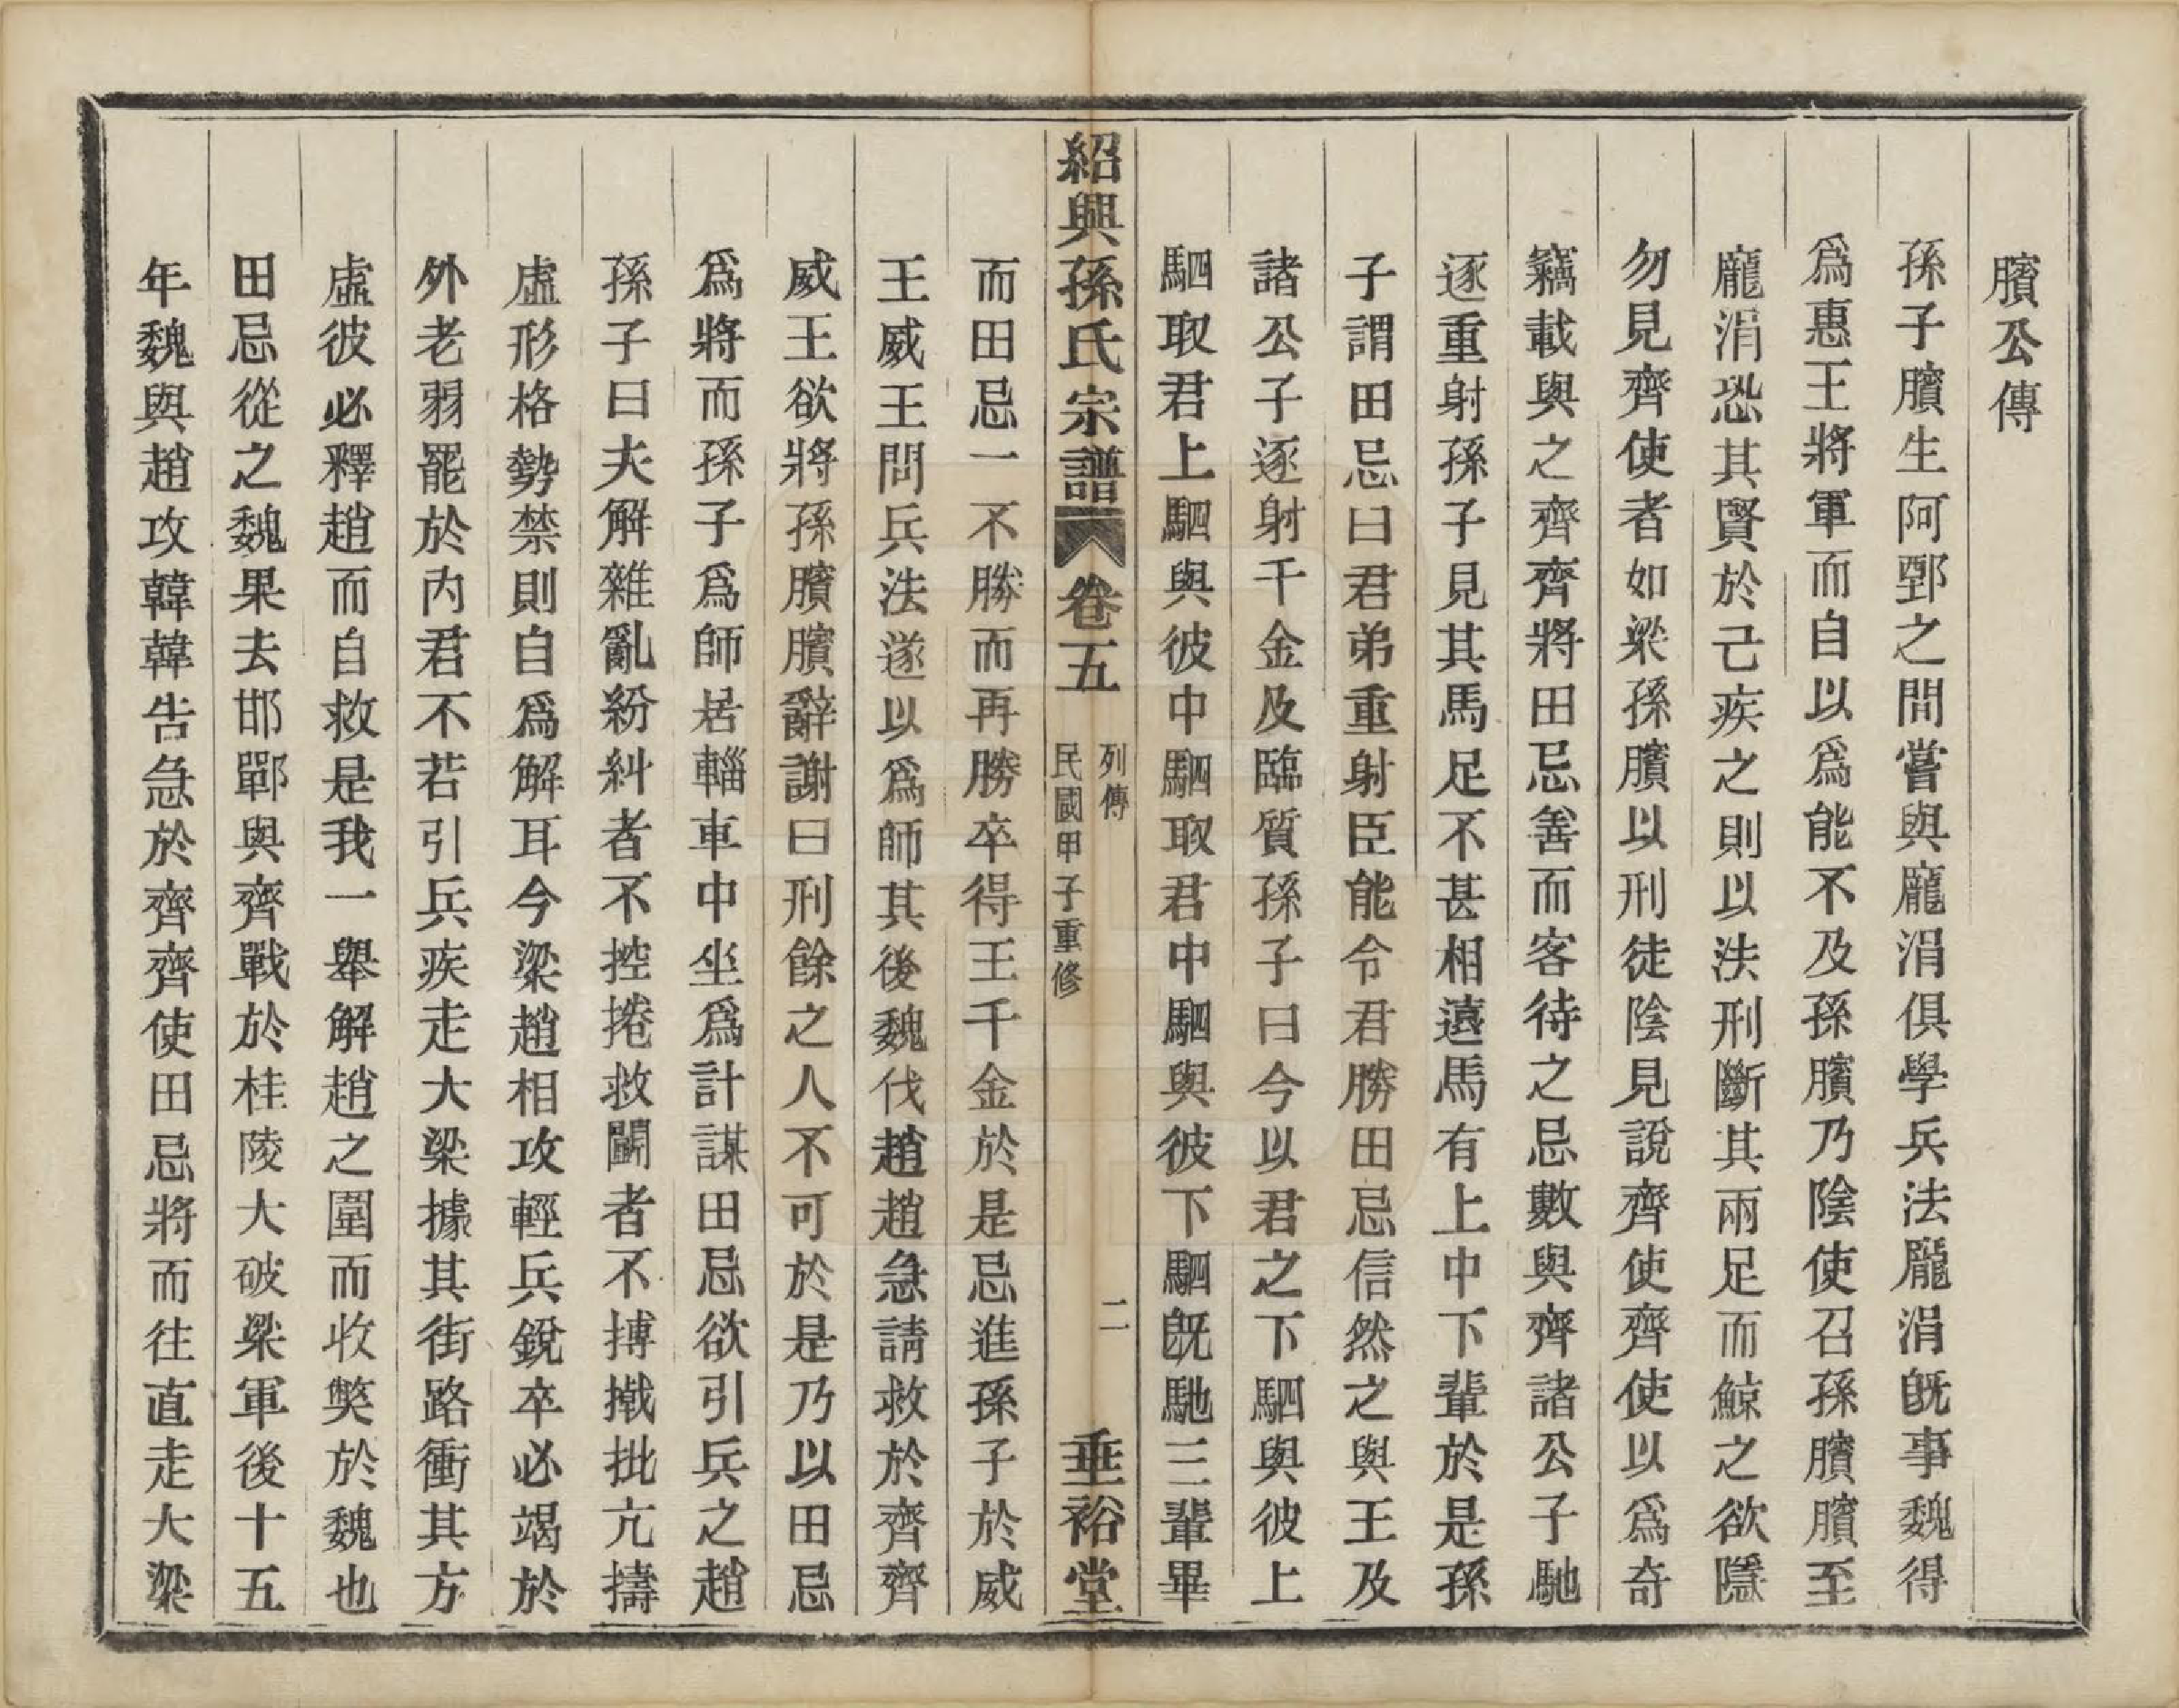 臏公傳
孫子臏生阿鄄之間嘗與龐涓俱學兵法龐涓旣事魏得
爲惠王將軍而自以爲能不及孫臏乃陰使召孫臏臏至
龐涓恐其賢於己疾之則以法刑斷其兩足而鯨之欲隱
勿見齊使者如梁孫臏以刑徒陰見說齊使齊使以爲奇
竊載與之齊齊將田忌善而客待之忌數與齊諸公子馳
逐重射孫子見其馬足不甚相遠馬有上中下輩於是孫
子謂田忌曰君弟重射臣能令君勝田忌信然之與王及
諸公子逐射千金及臨質孫子曰今以君之下駟與彼上
駟取君上駟與彼中駟取君中駟與彼下駟旣馳三輩畢
紹興孫氏宗譜 卷五 列傳 民國甲子重修 二 垂裕堂
而田忌一不勝而再勝卒得王千金於是忌進孫子於威
王威王問兵法遂以爲師其後魏伐趙趙急請救於齊齊
威王欲將孫臏臏辭謝曰刑餘之人不可於是乃以田忌
爲將而孫子爲師居輜車中坐爲計謀田忌欲引兵之趙
孫子曰夫解雜亂紛糾者不控捲救鬭者不搏撠批亢擣
虛形格勢禁則自爲解耳今梁趙相攻輕兵銳卒必竭於
外老弱罷於内君不若引兵疾走大梁據其街路衝其方
虛彼必釋趙而自救是我一舉解趙之圍而收獘於魏也
田忌從之魏果去邯鄲與齊戰於桂陵大破梁軍後十五
年魏與趙攻韓韓告急於齊齊使田忌將而往直走大梁